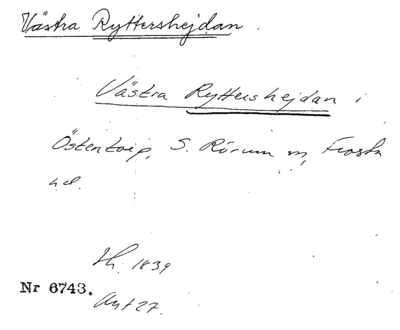 Västra Ryttershejdan.
Västra Ryttershejdan i
Östentorp, S. Rörum sn, Frosta
hd.
Sk. 1839
Nr 6743.
Akt 27.